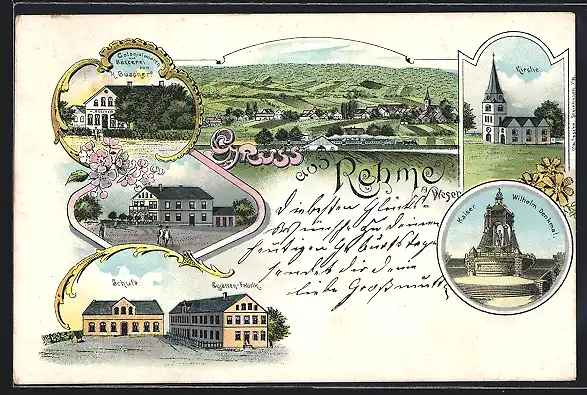 Colonialwaren
Bäckerei
von
H. Büscher
Kirche
Gruss
aus
Rehme
a/Weser
Kaiser Wilhelm Denkmal.
Schule
Cigarren-Fabrik
Die besten Glücks-
wünsche zu deinem
heutigen Geburtstage
sendet dir deine
liebe Großmutter